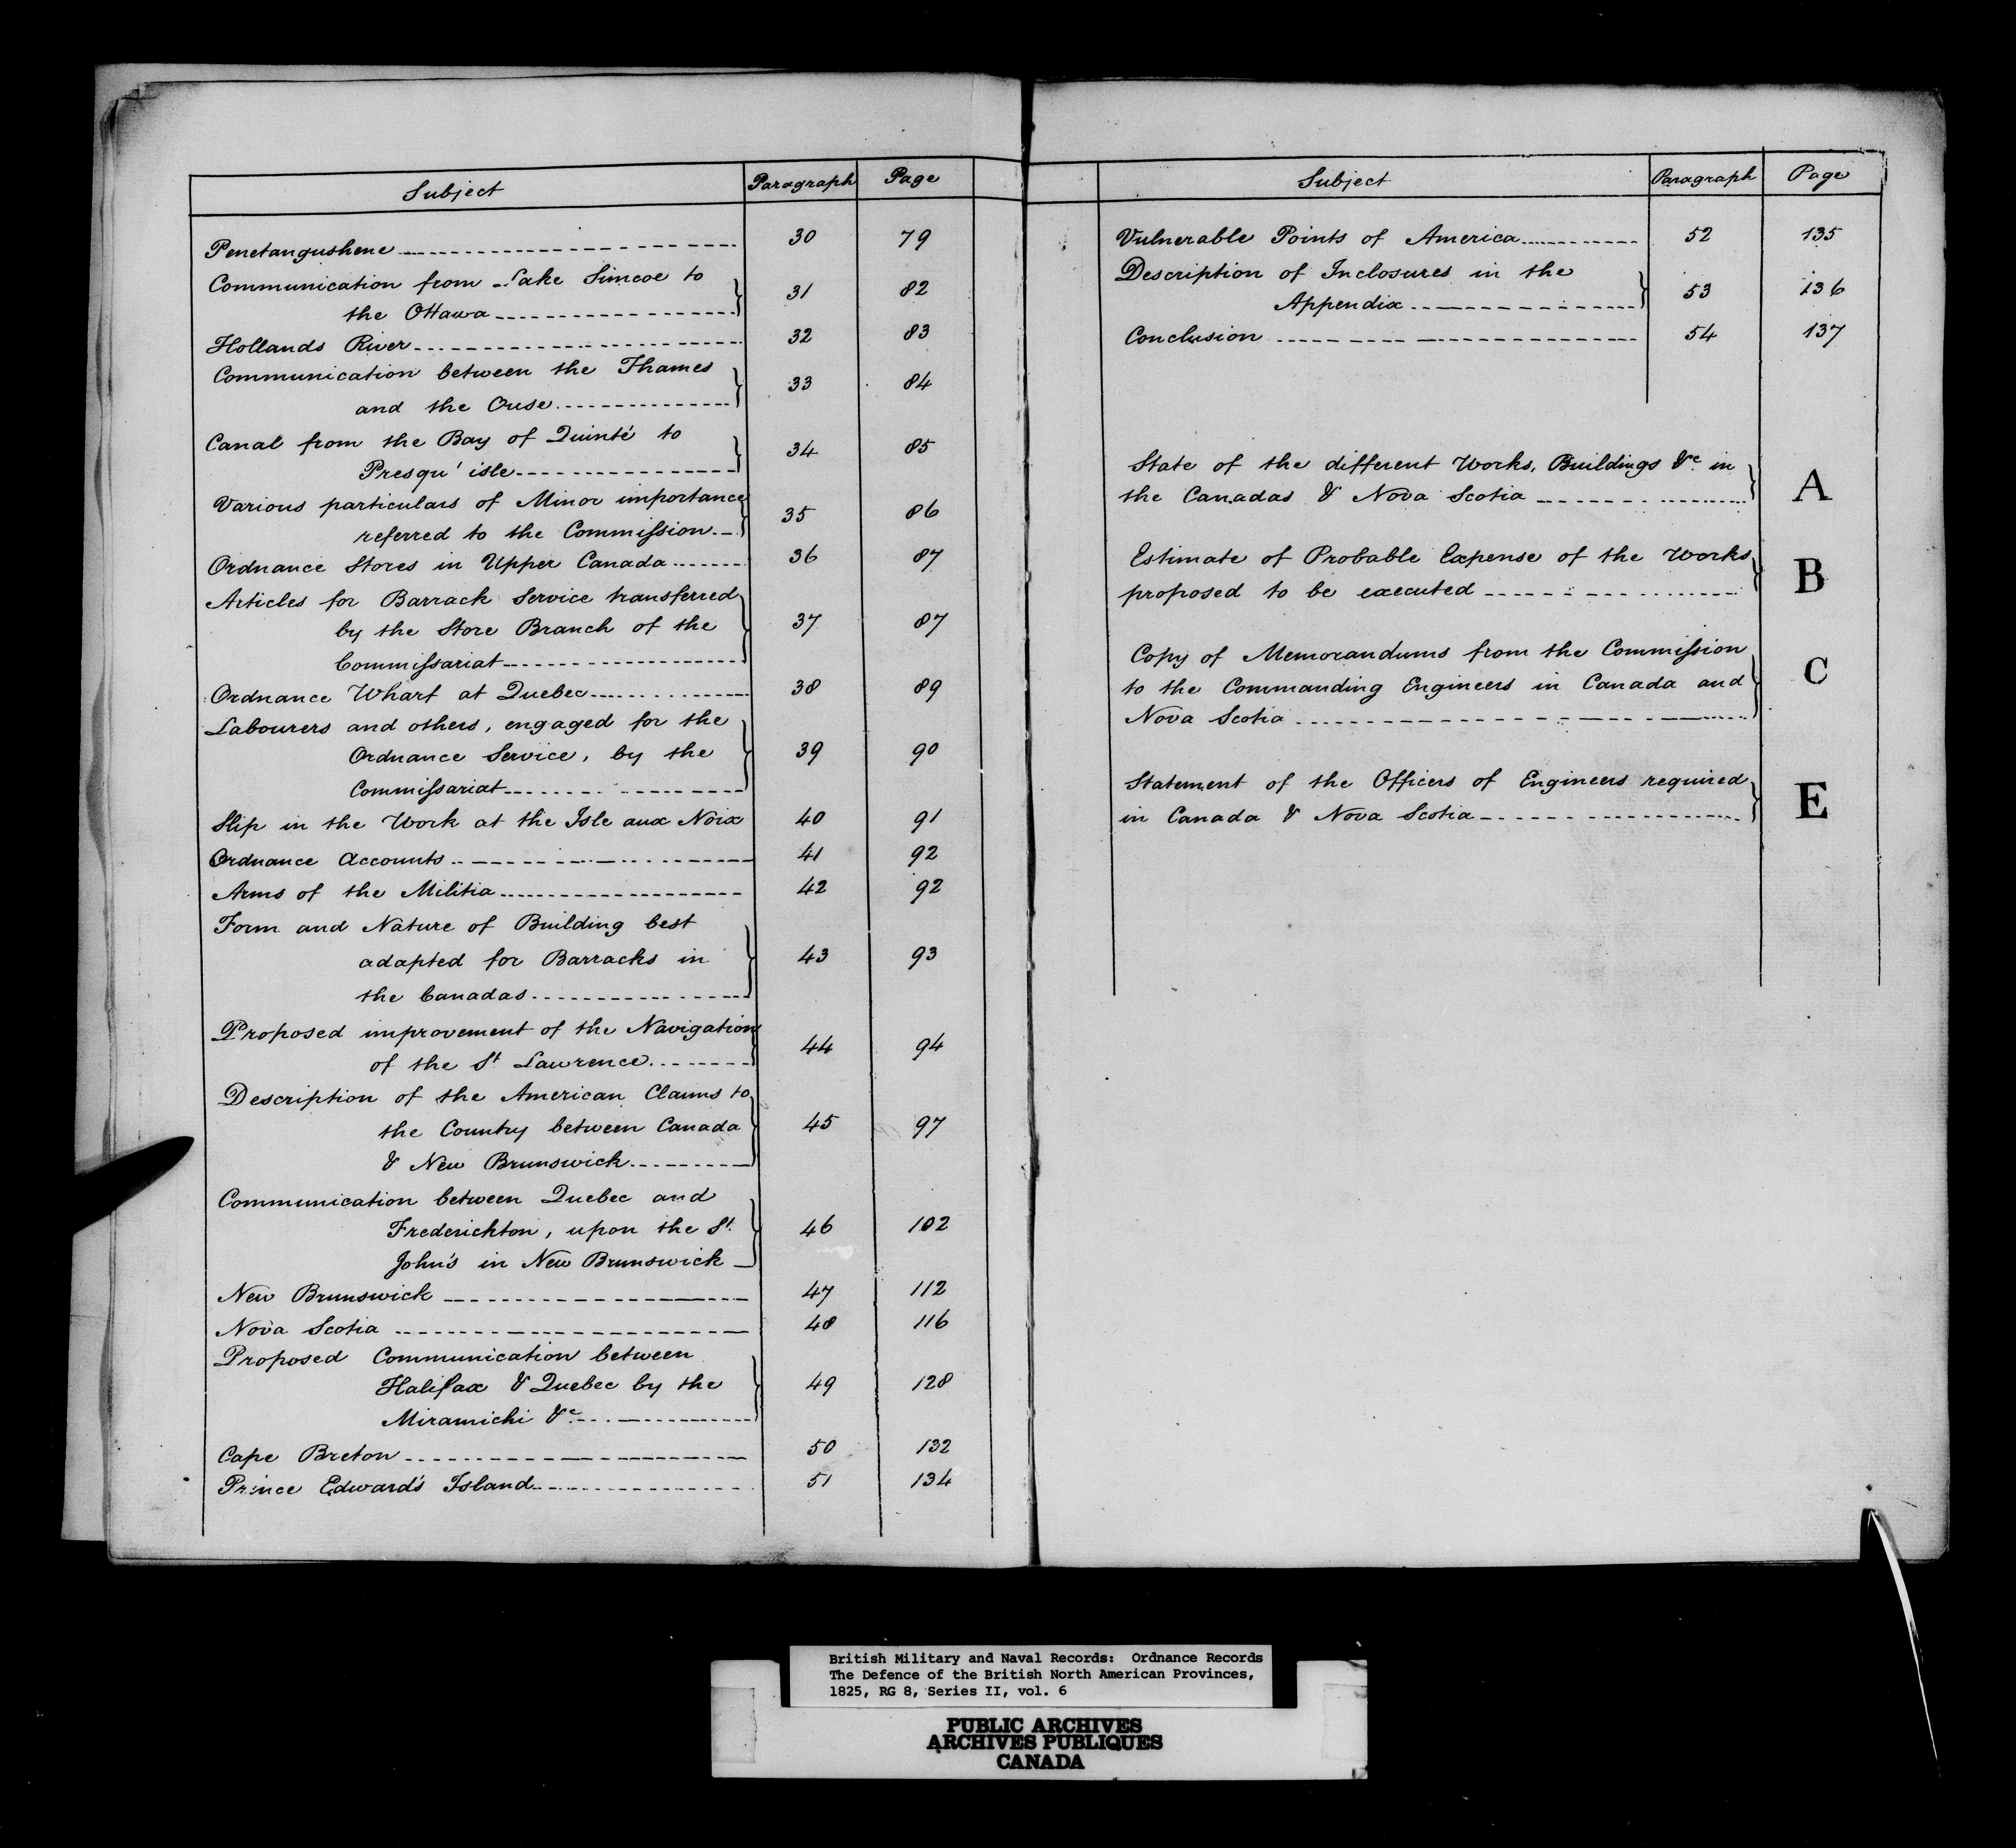 Subject Paragraph Page
Penetangushene 30 79
Communication from Lake Simcoe to
the Ottawa 31 82
Hollands River 32 83
Communication between the Thames
and the Ouse 33 84
Canal from the Bay of Quinté to
Presqu' isle 34 85
Various particulars of Minor importance
referred to the Commission 35 86
Ordnance Stores in Upper Canada 36 87
Articles for Barrack Service transferred
by the Store Branch of the 37 87
Commissariat
Ordnance Wharf at Quebec 38 89
Labourers and others, engaged for the
Ordnance Service, by the 39 90
Commissariat
Slip in the Work at the Isle aux Noix 40 91
Ordnance Accounts 41 92
Arms of the Militia 42 92
Form and Nature of Building best
adapted for Barracks in 43 93
the Canadas
Proposed improvement of the Navigation
of the St Lawrence 44 94
Description of the American Claims to
the Country between Canada 45 97
& New Brunswick
Communication between Quebec and
Frederickton, upon the St. 46 102
John's in New Brunswick
New Brunswick 47 112
Nova Scotia 48 116
Proposed Communication between
Halifax & Quebec by the 49 128
Miramichi &c
Cape Breton 50 132
Prince Edward's Island 51 134
Subject Paragraph Page
Vulnerable Points of America 52 135
Description of Inclosures in the
Appendix 53 136
Conclusion 54 137
State of the different Works, Buildings &c in
the Canadas & Nova Scotia A
Estimate of Probable Expense of the Works
proposed to be executed B
Copy of Memorandums from the Commission
to the Commanding Engineers in Canada and C
Nova Scotia
Statement of the Officers of Engineers required
in Canada & Nova Scotia E
British Military and Naval Records: Ordnance Records
The Defence of the British North American Provinces,
1825, RG 8, Series II, vol. 6
PUBLIC ARCHIVES
ARCHIVES PUBLIQUES
CANADA